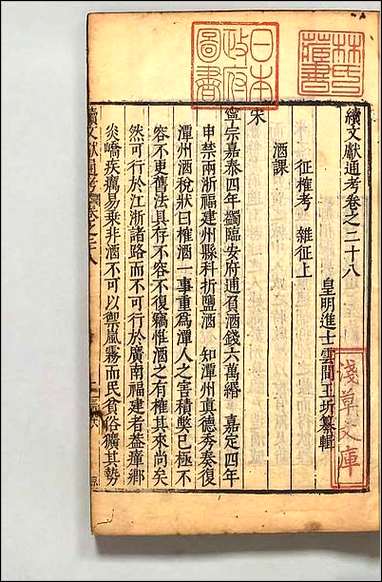 續文獻通考卷之二十八
皇明進士雲間王圻纂輯
征榷考 雜征上
酒課
宋
寧宗嘉泰四年蠲臨安府逋負酒錢六萬緡 嘉定四年
申禁兩浙福建州縣科折鹽酒 知潭州真德秀奏復
潭州酒稅狀曰榷酒一事重為潭人之害積弊已極不
容不更舊法具存不容不復竊惟酒之有榷其來尚矣
然可行於江浙諸路而不可行於廣南福建者葢瘴鄉
炎嶠疾癘易乗非酒不可以禦嵐霧而民貧俗獷其勢
續文獻通考 卷之二八
林氏藏書
日本政府圖書
淺草文庫